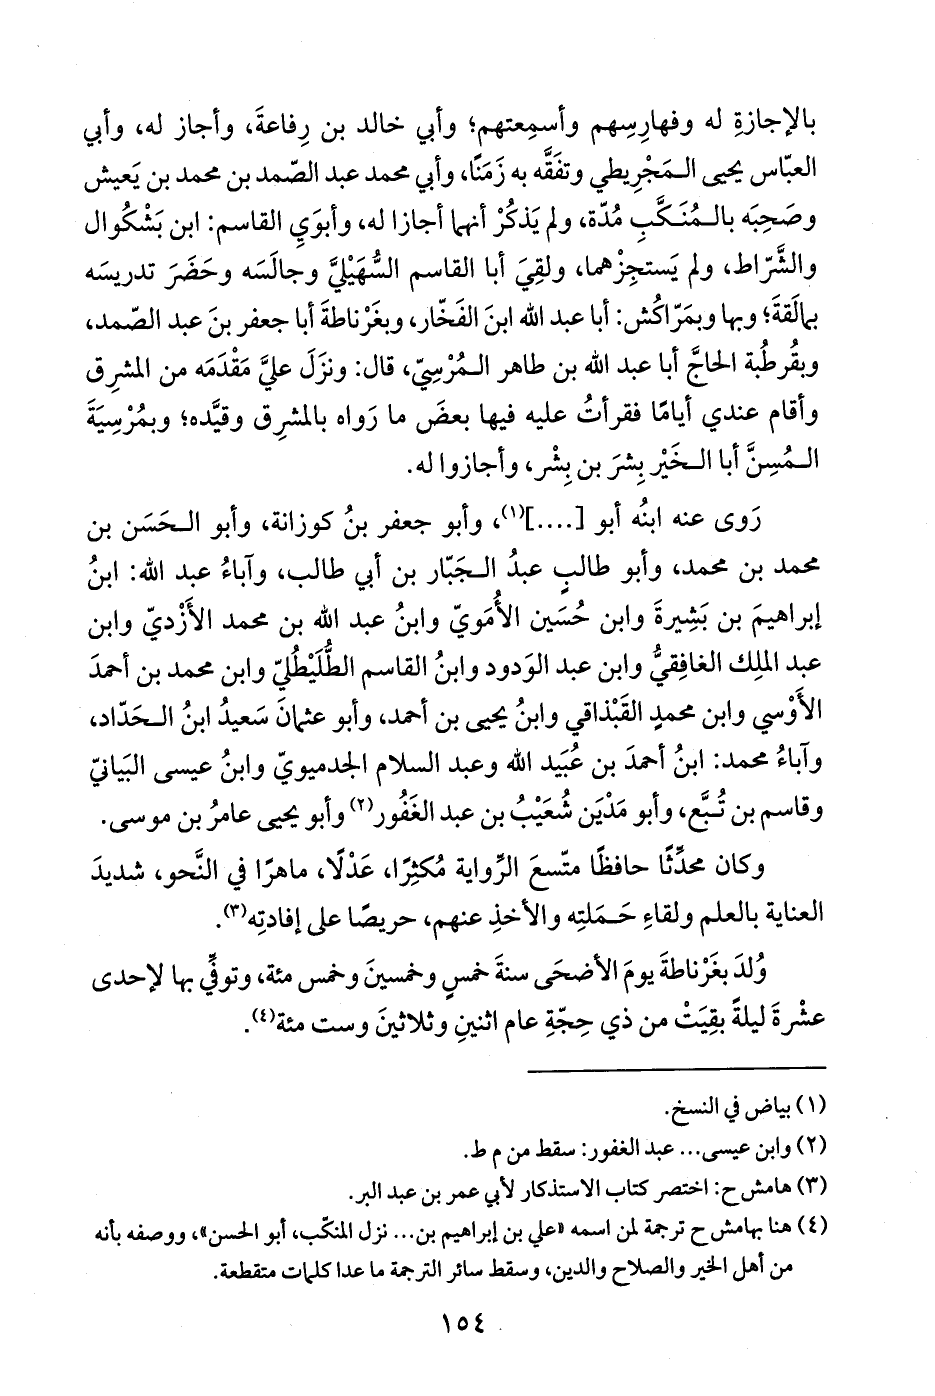 بالإجازةِ له وفهارِسِهم وأسمِعتهم؛ وأبي خالد بن رِفاعةَ، وأجاز له، وأبي
العبّاس يحيى الـمَجْرِيطي وتفَقَّه به زَمَنًا، وأبي محمد عبد الصّمد بن محمد بن يَعيش
وصَحِبَه بالـمُنَكَّبِ مُدّة، ولم يَذكُرْ أنهما أجازا له، وأبوَيِ القاسم: ابن بَشْكُوال
والشَّرّاط، ولم يَستجِزْهما، ولقِيَ أبا القاسم السُّهَيْليَّ وجالَسَه وحَضَرَ تدريسَه
بمالَقةَ؛ وبها وبمَرّاكُش: أبا عبد الله ابنَ الفَخّار، وبغَرْناطةَ أبا جعفر بنَ عبد الصّمد،
وبقُرطُبة الحاجَّ أبا عبد الله بن طاهر الـمُرْسِيّ، قال: ونزَلَ عليَّ مَقْدَمَه من المشرِق
وأقام عندي أيامًا فقرأتُ عليه فيها بعضَ ما رَواه بالمشرِق وقيَّده؛ وبمُرْسِيَةَ
الـمُسِنَّ أبا الـخَيْر بِشرَ بن بِشْر، وأجازوا له.
رَوى عنه ابنُه أبو [....](١)، وأبو جعفر بنُ كوزانة، وأبو الـحَسَن بن
محمد بن محمد، وأبو طالبٍ عبدُ الـجَبّار بن أبي طالب، وآباءُ عبد الله: ابنُ
إبراهيمَ بن بَشِيرةَ وابن حُسَين الأُمَويّ وابنُ عبد الله بن محمد الأَزْديّ وابن
عبد الملِك الغافِقيُّ وابن عبد الوَدود وابنُ القاسم الطُّلَيْطُليّ وابن محمد بن أحمدَ
الأَوْسي وابن محمدٍ القَبْذاقي وابنُ يحيى بن أحمد، وأبو عثمانَ سَعيدُ ابنُ الـحَدّاد،
وآباءُ محمد: ابنُ أحمدَ بن عُبَيد الله وعبد السلام الجدميويّ وابنُ عيسى البَيانيّ
وقاسم بن تُبَّع، وأبو مَدْيَن شُعَيْبُ بن عبد الغَفُور(٢) وأبو يحيى عامرُ بن موسى.
وكان محدِّثًا حافظًا متّسعَ الرِّواية مُكثِرًا، عَدْلًا، ماهرًا في النَّحو، شديدَ
العناية بالعلم ولقاءِ حَـمَلتِه والأخذِ عنهم، حريصًا على إفادتِه(٣).
وُلدَ بغَرْناطةَ يومَ الأضحَى سنةَ خمسٍ وخمسينَ وخمس مئة، وتوفِّي بها لإحدى
عشْرةَ ليلةً بقِيَتْ من ذي حِجّةِ عام اثنينِ وثلاثينَ وست مئة(٤).
(١) بياض في النسخ.
(٢) وابن عيسى... عبد الغفور: سقط من م ط.
(٣) هامش ح: اختصر كتاب الاستذكار لأبي عمر بن عبد البر.
(٤) هنا بهامش ح ترجمة لمن اسمه «علي بن إبراهيم بن... نزل المنكّب، أبو الحسن»، ووصفه بأنه
من أهل الخير والصلاح والدين، وسقط سائر الترجمة ما عدا كلمات متقطعة.
١٥٤